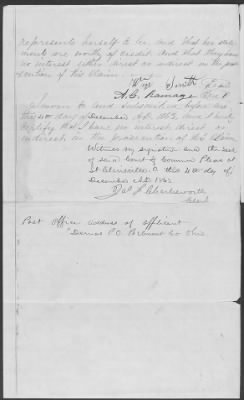 represents herself to be, and that her state
ments are worthy of credit and that they have
no interest either direct or indirect in the prose
cution of this Claim.
Wm Smith
A. C. Ramage
Sworn to and subscribed before me
this day of December A.D. 1862, and I hereby
certify that I have no interest direct or
indirect in the prosecution of this Claim
Witness my signature and the seal
of said Court of Common Pleas at
St Clairsville O. this day of
December A.D. 1862
Clerk
Post Office address of applicant
P.O. Belmont Co Ohio